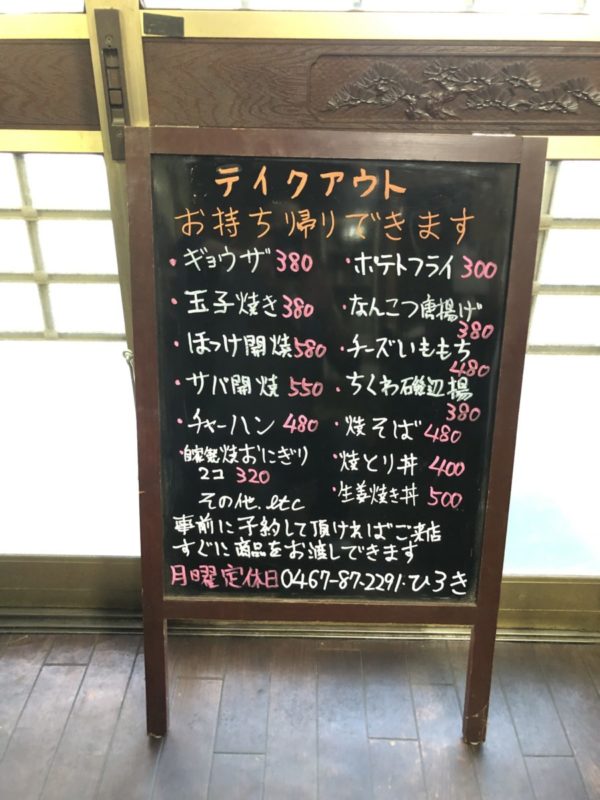 テイクアウト
お持ち帰りできます
・ギョウザ 380
・玉子焼き 380
・ほっけ開焼 580
・サバ開焼 550
・チャーハン 480
・自家製焼おにぎり
2コ 320
その他.etc
・ポテトフライ 300
・なんこつ唐揚げ
380
・チーズいももち
480
・ちくわ磯辺揚
380
・焼そば 480
・焼とり丼 400
・生姜焼き丼 500
事前に予約して頂ければご来店
すぐに商品をお渡しできます
月曜定休日 0467-87-2291・ひろき